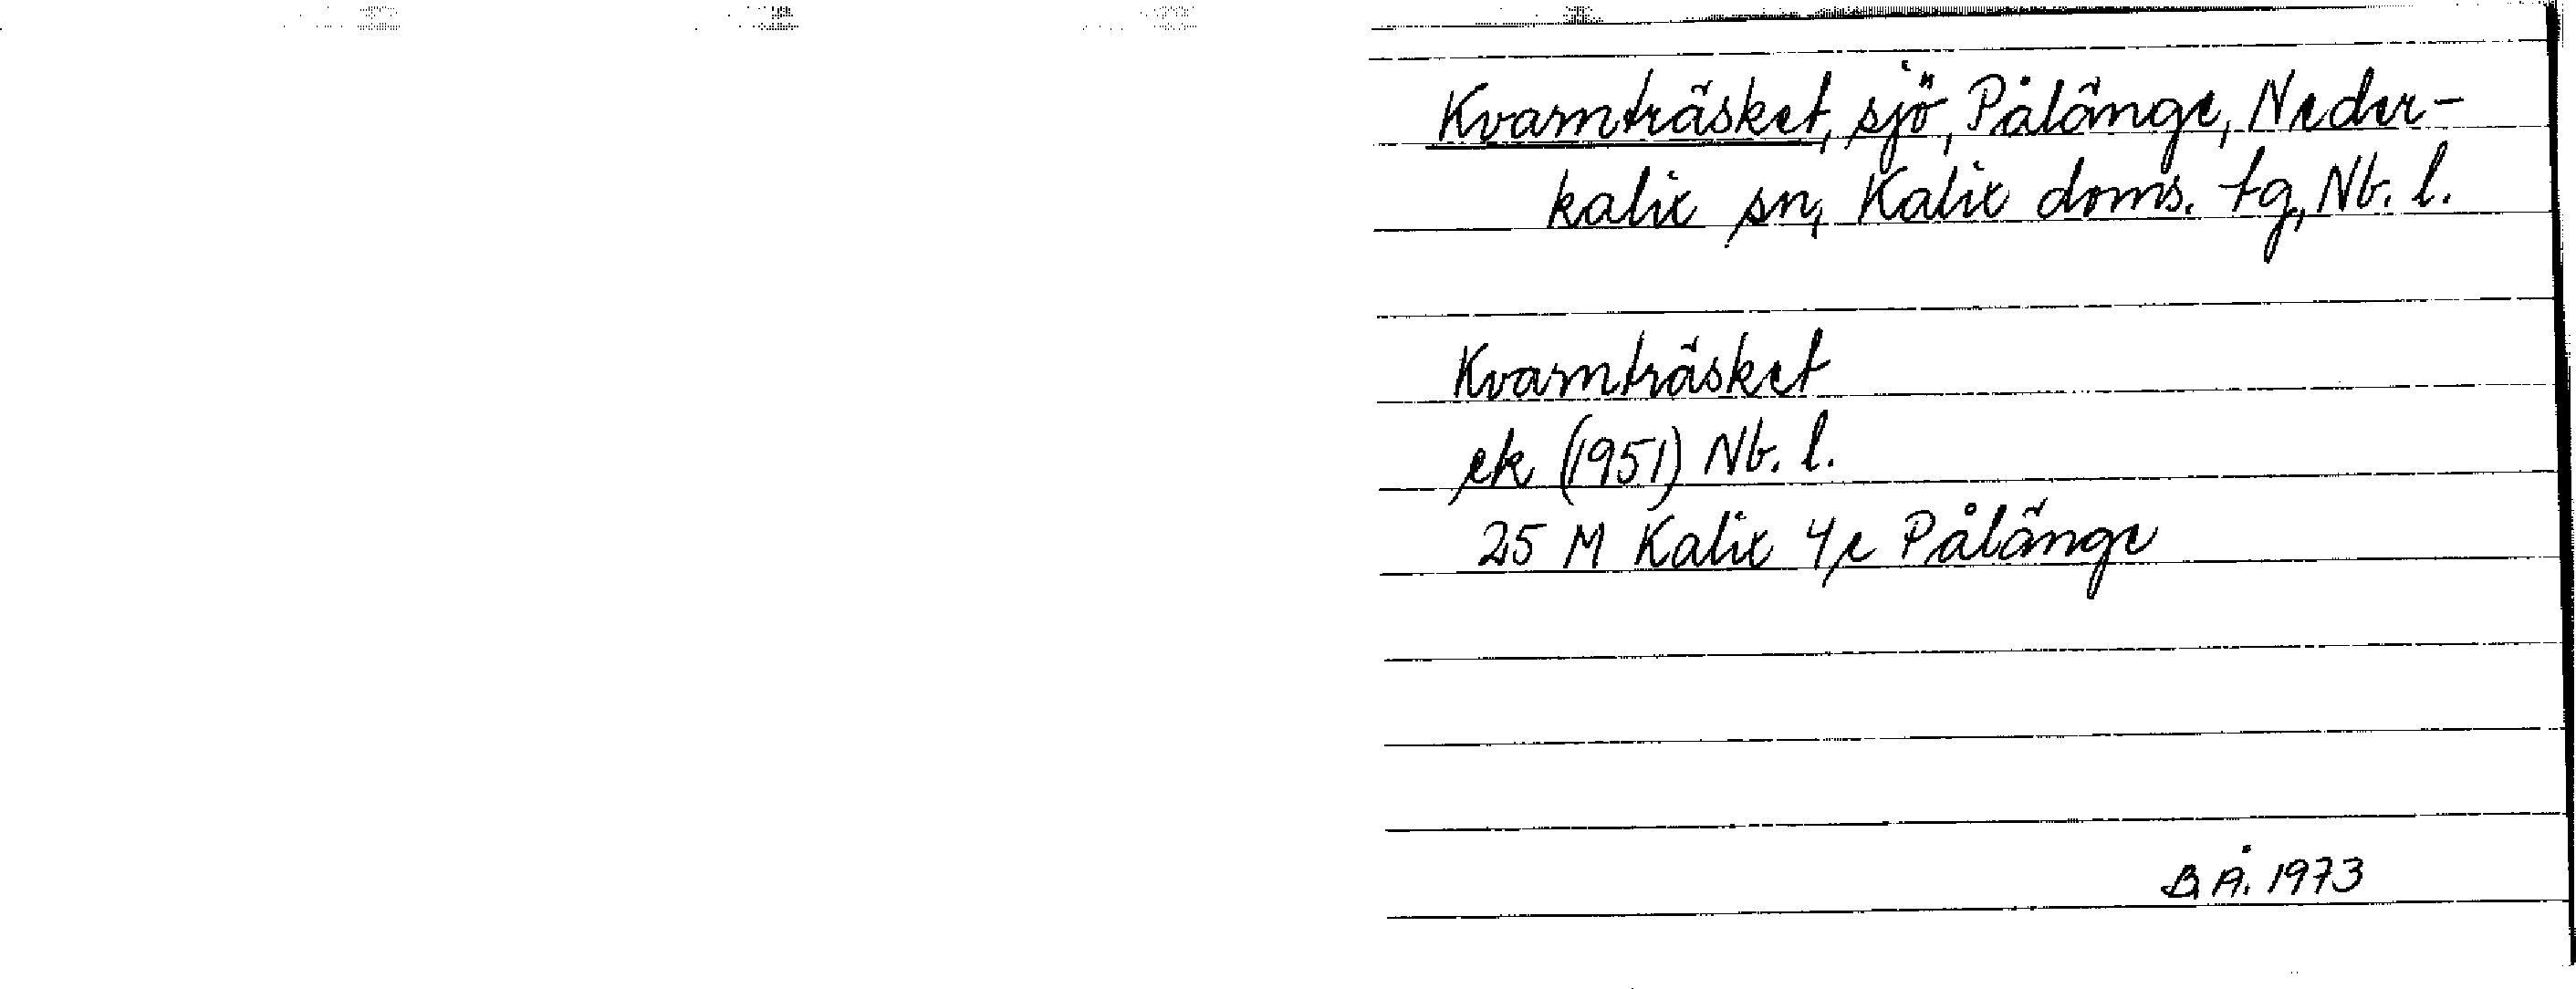 Kvarnträsket, sjö, Pålänge, Neder-
kalix sn, Kalix doms. tg, Nb. l.
Kvarnträsket
ek (1951) Nb. l.
25 M Kalix 4e Pålänge
B.Å. 1973